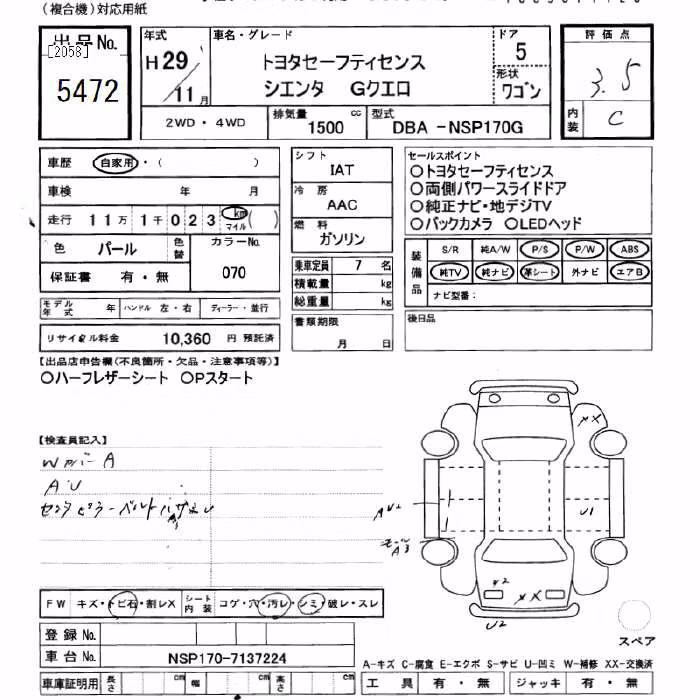 (複合機)対応用紙
出品No.
[2058]
5472
年式
H29
11月
車名・グレード
トヨタセーフティセンス
シエンタ Gクエロ
ドア
5
形状
ワゴン
評価点
3.5
内装 C
2WD・4WD
排気量 cc
1500
型式
DBA-NSP170G
車歴 自家用・( )
車検 年 月
走行 11万1千023 km マイル ( )
色 パール 色替
カラーNo.
070
保証書 有・無
モデル年式 年 ハンドル 左・右 ディーラー・並行
リサイクル料金 10,360 円 預託済
シフト
IAT
冷房
AAC
燃料
ガソリン
乗車定員 7 名
積載量 kg
総重量 kg
書類期限
月 日
セールスポイント
○トヨタセーフティセンス
○両側パワースライドドア
○純正ナビ・地デジTV
○バックカメラ ○LEDヘッド
装備品
S/R 純A/W P/S P/W ABS
純TV 純ナビ 革シート 外ナビ エアB
ナビ型番:
後日品
【出品店申告欄(不良箇所・欠品・注意事項等)】
○ハーフレザーシート ○Pスタート
【検査員記入】
A U
センタピラーベルト
XX
AU2
U1
A3
XX
U2
FW キズ・トビ石・割レX シート内装 コゲ・穴・汚レ・シミ・破レ・スレ
登録No.
車台No. NSP170-7137224
車庫証明用 長さ cm 幅 cm 高さ cm
スペア
A-キズ C-腐食 E-エクボ S-サビ U-凹ミ W-補修 XX-交換済
工具 有・無 ジャッキ 有・無